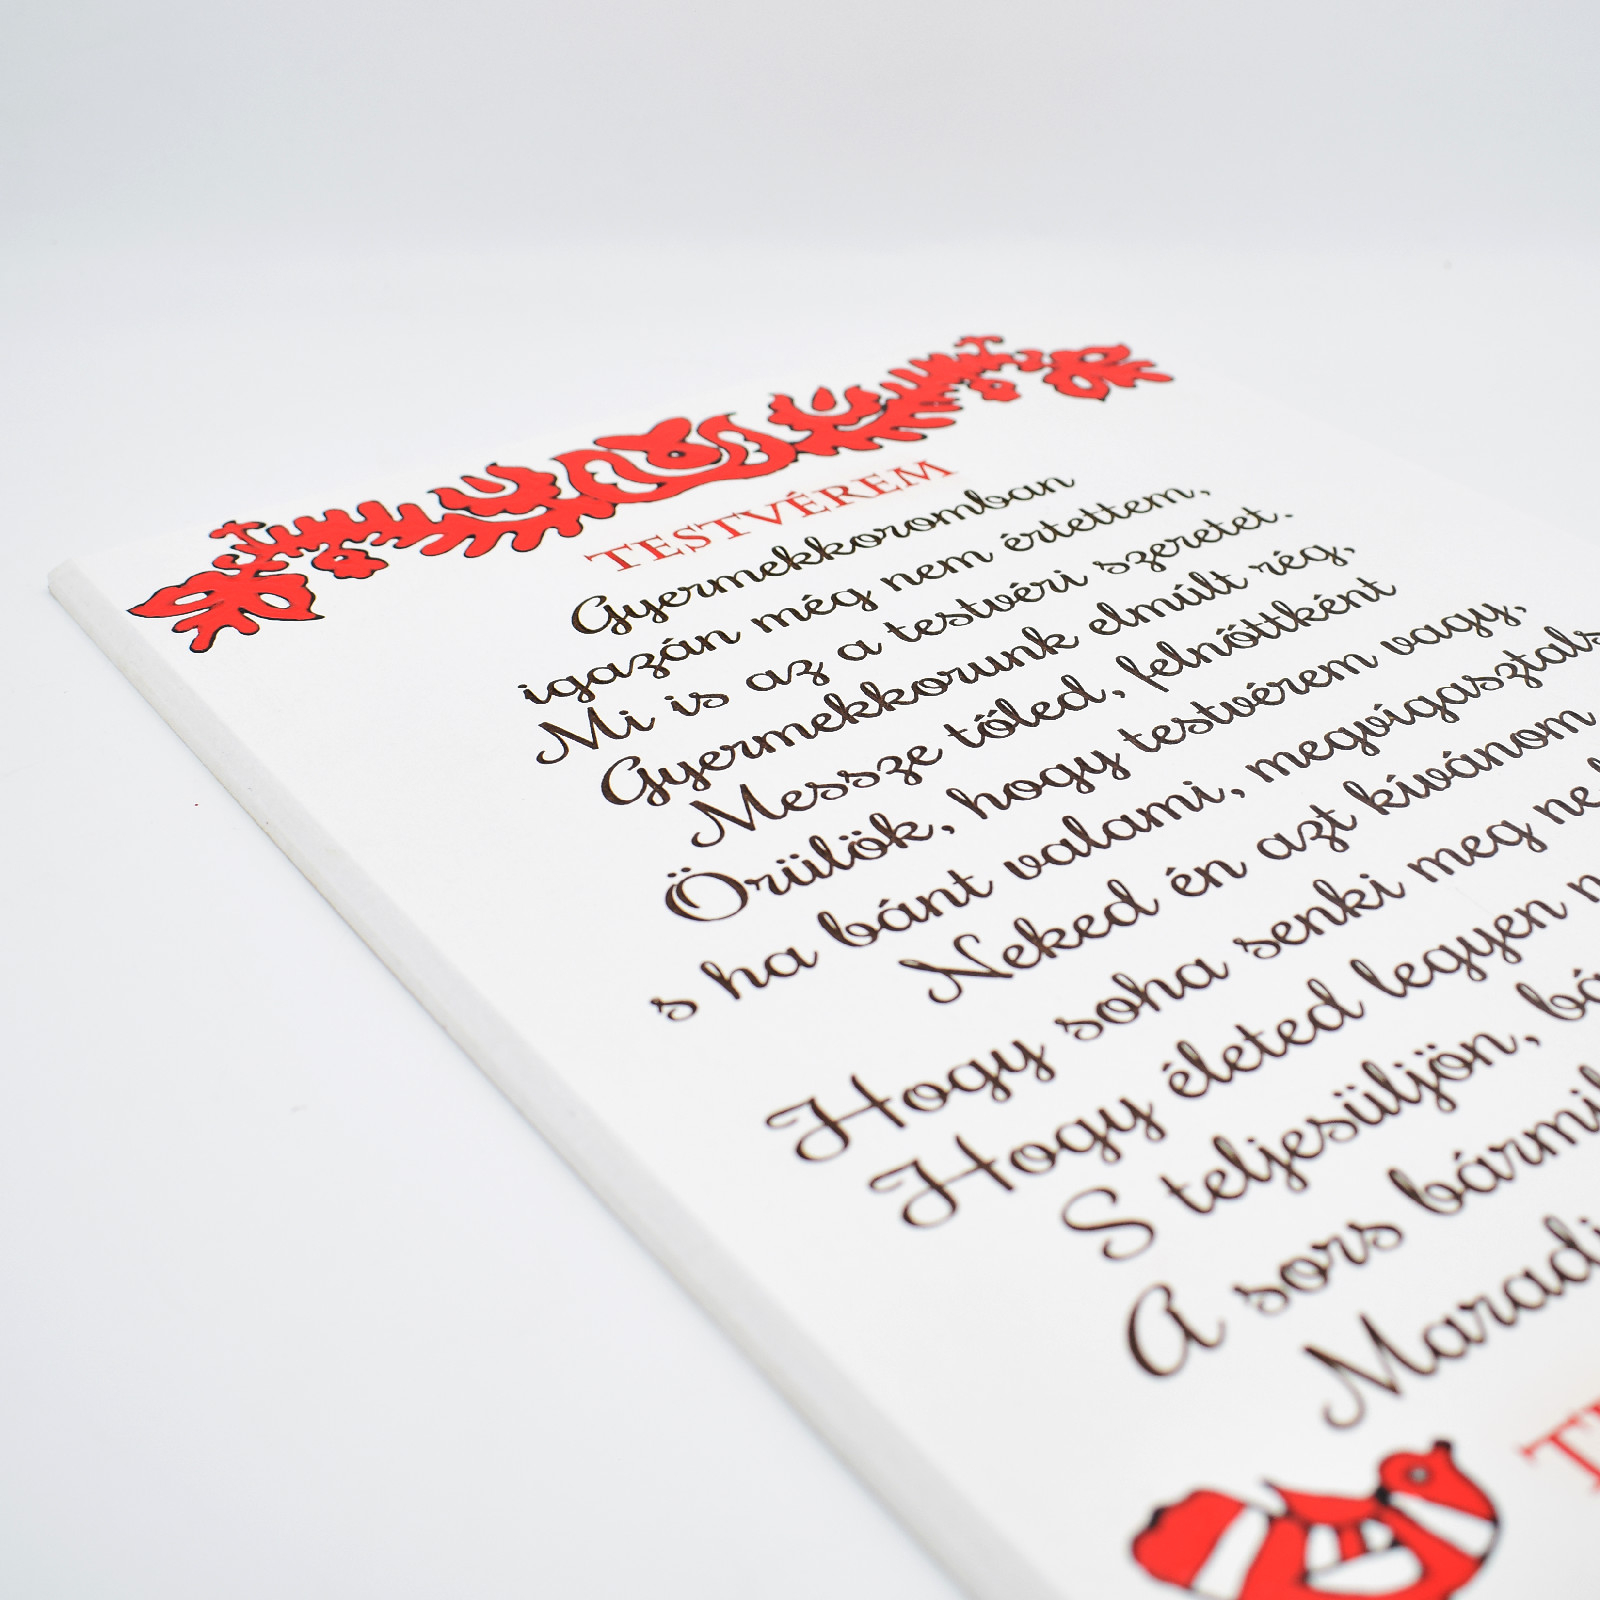 TESTVÉREM
Gyermekkoromban
igazán még nem értettem,
Mi is az a testvéri szeretet.
Gyermekkorunk elmúlt rég,
Messze tőled, felnőttként
Örülök, hogy testvérem vagy,
s ha bánt valami, megvígasztals
Neked én azt kívánom
Hogy soha senki meg ne
Hogy életed legyen
S teljesüljön,
A sors